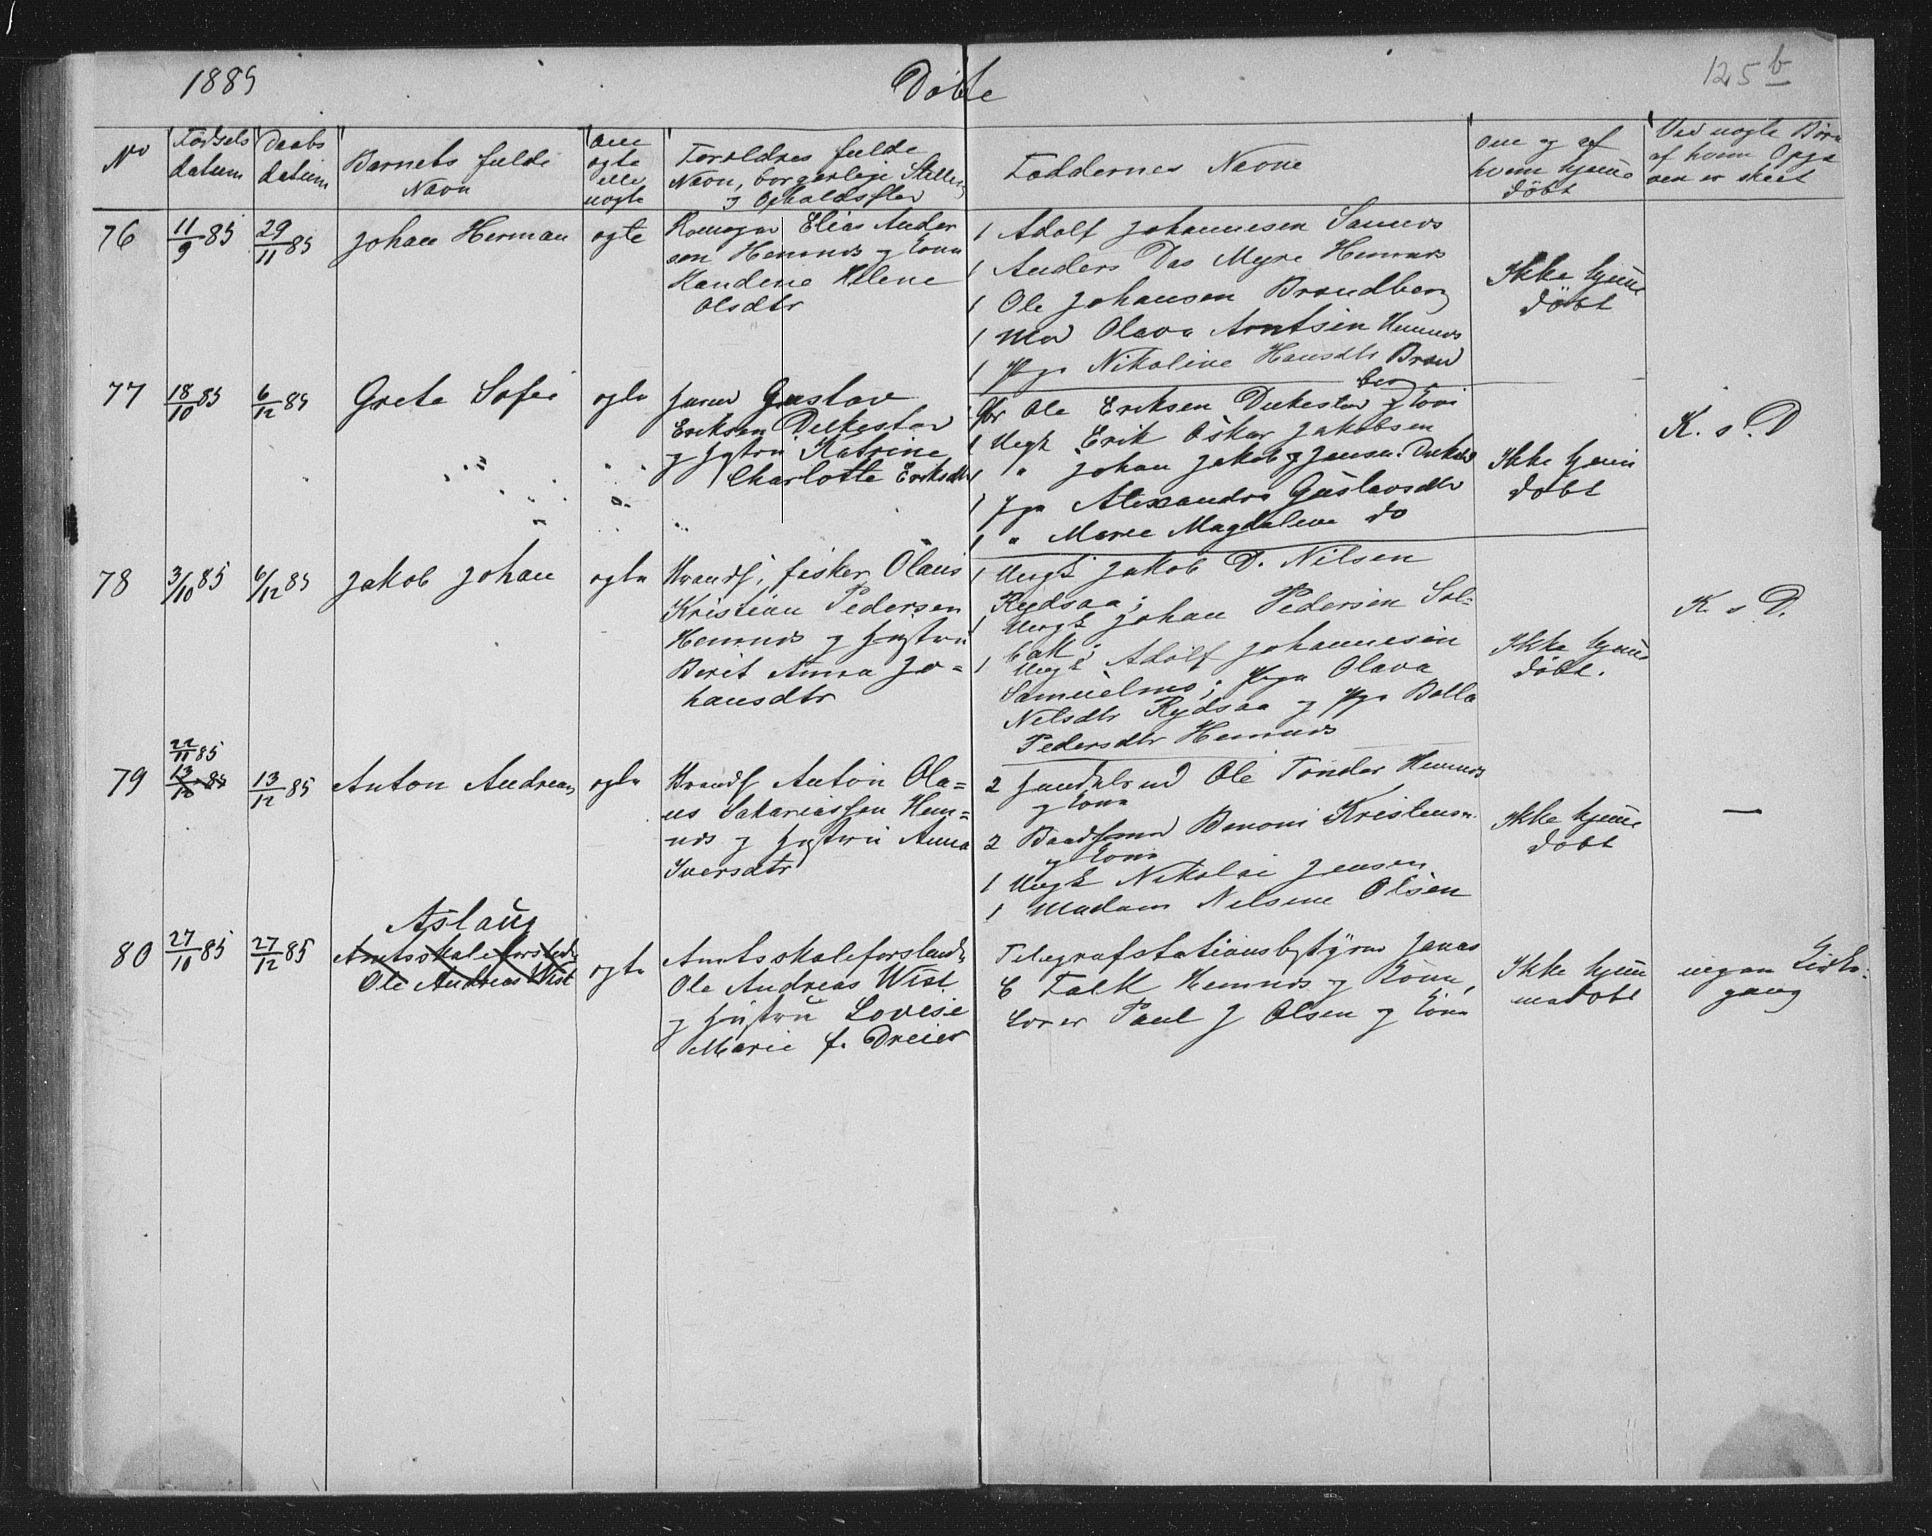 1885 Døbte 125 b
No
Fødsels datum
Daabs datum
Barnets fulde Navn
om ægte elle uægte
Forældres fulde Navn, borgerlige Stilling og Opholdssted
Faddernes Navne
om og af hvem hjemme døbt
Ved uægte Børn af hvem Opga ven er skeet
76 11/9 85 29/11 85 Johan Herman ægte
Elias Ander
sen Hemnes og Kone
Handine Helene
Olsdtr
1 Adolf Johannesen
1 Anders Das Myre Hemnes
1 Ole Johansen Brandberg
1 Mad Olava Arntsen Hemnes
1 Pge Nikoline Hansdtr Brand
berg
Ikke hjemme
døbt
77 18/10 85 6/12 85 Grete Sofie ægte
Gustav
Eriksen
og Hustru Katrine
Charlotte Eriksdtr
Gbr Ole Eriksen og Kone
1 Ungk Erik Oskar Jakobsen
1 " Johan Jakob
1 Pge Alexandra Gustavsdtr
1 " Maree Magdalene do
Ikke hjem
døbt
K. s. D
78 3/10 85 6/12 85 Jakob Johan ægte
Strands. fisker Olaus
Kristian Pedersen
Hemnes og Hustru
Berit Anna Jo=
hansdtr
1 Ungk Jakob D. Nilsen
Rydsaa;
1 Ungk Johan Pedersen Sol=
bak;
1 Ungk Adolf Johannesen
Pge Olava
Nilsdtr Rydsaa og Pge
Pedersdtr Hemnes
Ikke hjemme
døbt.
K. s D.
22/11 85
79 13/12 85 Anton Andreas ægte
Strands Anton Ola=
us Sakariassen Hem=
nes og Hustru Anna
Iversdtr
2 Handelsmd Ole Tonder Hemnes
og Kone
2 Benoni Kristensen
og Kone
1 Ungk Nikolai Jensen
1 Madam Nilsine Olsen
Ikke hjemme
døbt
—
Aslaug
80 27/10 85 27/12 85
Amtsskoleforstand
Ole Andreas Wist
ægte
Amtsskoleforstand
Ole Andreas Wist
og Hustru Lovise
Marie f. Dreier
Telegrafstationsbstyrer Jonas
C Falk Hemnes og Kone,
Lærer Paul J Olsen og Kone
Ikke hjem
medøbt
ingen Kirke
gang